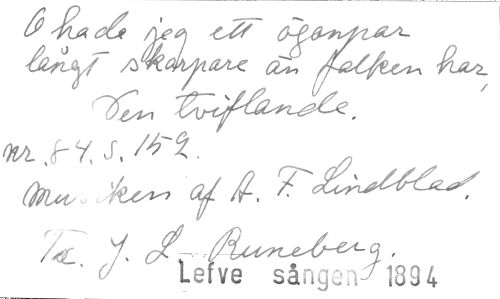 O hade jag ett ögonpar
långt skarpare än falken har,
Den tviflande.
nr. 84. S. 152.
Musiken af A. F. Lindblad.
Tx. J. L. Runeberg.
Lefve sången 1894